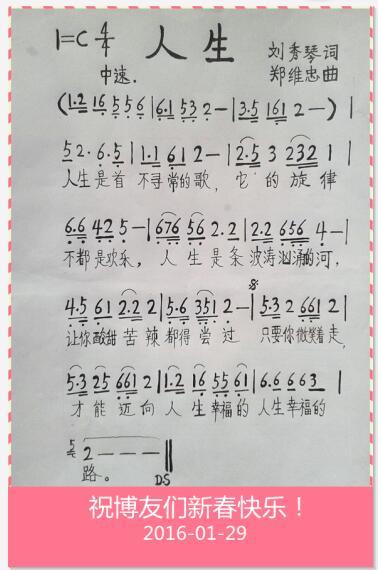 1=C 4/4 人生 刘秀琴词
中速. 郑维忠曲
(1.2 16 5 5 6 | 6.1 53 2 — | 3.5 161 2 — )
5 2 . 6 . 5 | 1.1 61 2 — | 2.5 3 232 1 |
人生是首 不寻常的歌, 它的旋律
6.6 42 5 — | 676 56 2.2 | 2.2 656 4 — |
不都是欢乐, 人生是条波涛汹涌的河,
4.5 61 2.2 2 | 5.6 351 2 — | 5.3 2 661 2 |
让你酸甜苦辣都得尝过 只要你微笑着走,
5.3 25 661 2 | 1.2 16 55 61 | 6.6 663 |
才能迈向人生幸福的人生幸福的
5 2 — — — ||
路。 D.S
祝博友们新春快乐！
2016-01-29